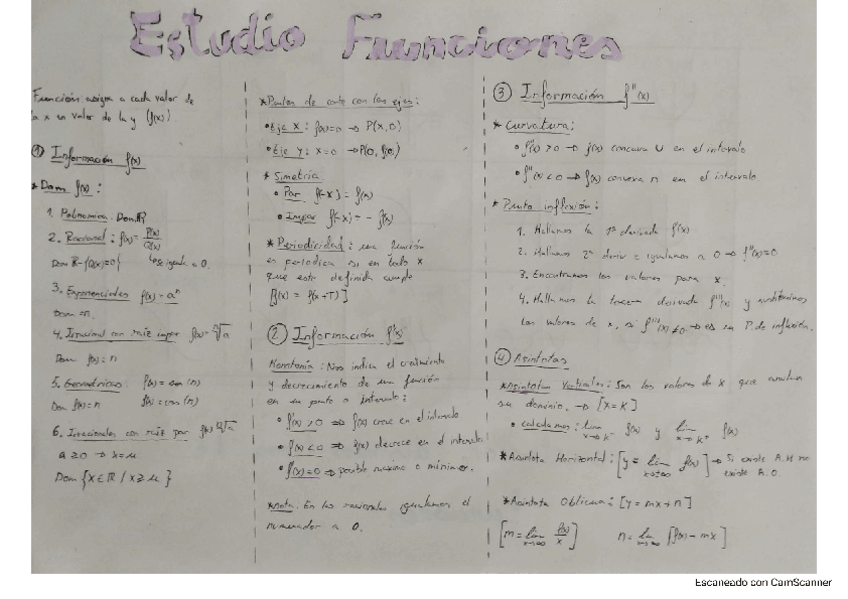 Estudio Funciones
Función asigna a cada valor de
la x un valor de la y (f(x))
① Información f(x)
* Dom f(x):
1. Polinomica: Dom ℝ
2. Racional: f(x) = P(x)/Q(x)
Dom ℝ - {Q(x)=0} se iguala a 0.
3. Exponenciales f(x) = aⁿ
Dom = n.
4. Irracional con raíz impar f(x) = ⁿ√a
Dom f(x) = n
5. Geometricas: f(x) = sen(n)
Dom f(x) = n f(x) = cos(n)
6. Irracionales con raíz par f(x) ⁿ√a
a ≥ 0 → x = u
Dom {x ∈ ℝ / x ≥ u}
* Puntos de corte con los ejes:
• Eje X: f(x) = 0 → P(x, 0)
• Eje Y: x = 0 → P(0, f(0))
* Simetría
• Par f(-x) = f(x)
• Impar f(-x) = - f(x)
* Periodicidad: una función
es periodica si en todo x
que este definida cumple
[f(x) = f(x+T)]
② Información f'(x)
Monotonía: Nos indica el crecimiento
y decrecimiento de una función
en un punto o intervalo:
• f'(x) > 0 ⇒ f(x) crece en el intervalo
• f'(x) < 0 ⇒ f(x) decrece en el intervalo
• f'(x) = 0 ⇒ posible maximo o mínimo.
* Nota: En las racionales igualamos el
numerador a 0.
③ Información f''(x)
* Curvatura:
• f''(x) > 0 → f(x) concava ∪ en el intervalo
• f''(x) < 0 → f(x) convexa ∩ en el intervalo
* Punto inflexión:
1. Hallamos la 1ª derivada f'(x)
2. Hallamos 2ª deriv e igualamos a 0 → f''(x) = 0
3. Encontramos los valores para x.
4. Hallamos la tercera derivada f'''(x) y sustituimos
los valores de x, si f'''(x) ≠ 0 → es un P. de inflexión.
④ Asintotas
* Asintotas Verticales: Son los valores de x que anulan
su dominio. → [x = K]
• calculamos: lim x→K⁻ f(x) y lim x→K⁺ f(x)
* Asintota Horizontal: [y = lim x→±∞ f(x)] → Si existe A.H no
existe A.O.
* Asintota Oblicua: [y = mx + n]
[m = lim x→∞ f(x)/x] n = lim x→∞ [f(x) - mx]
Escaneado con CamScanner